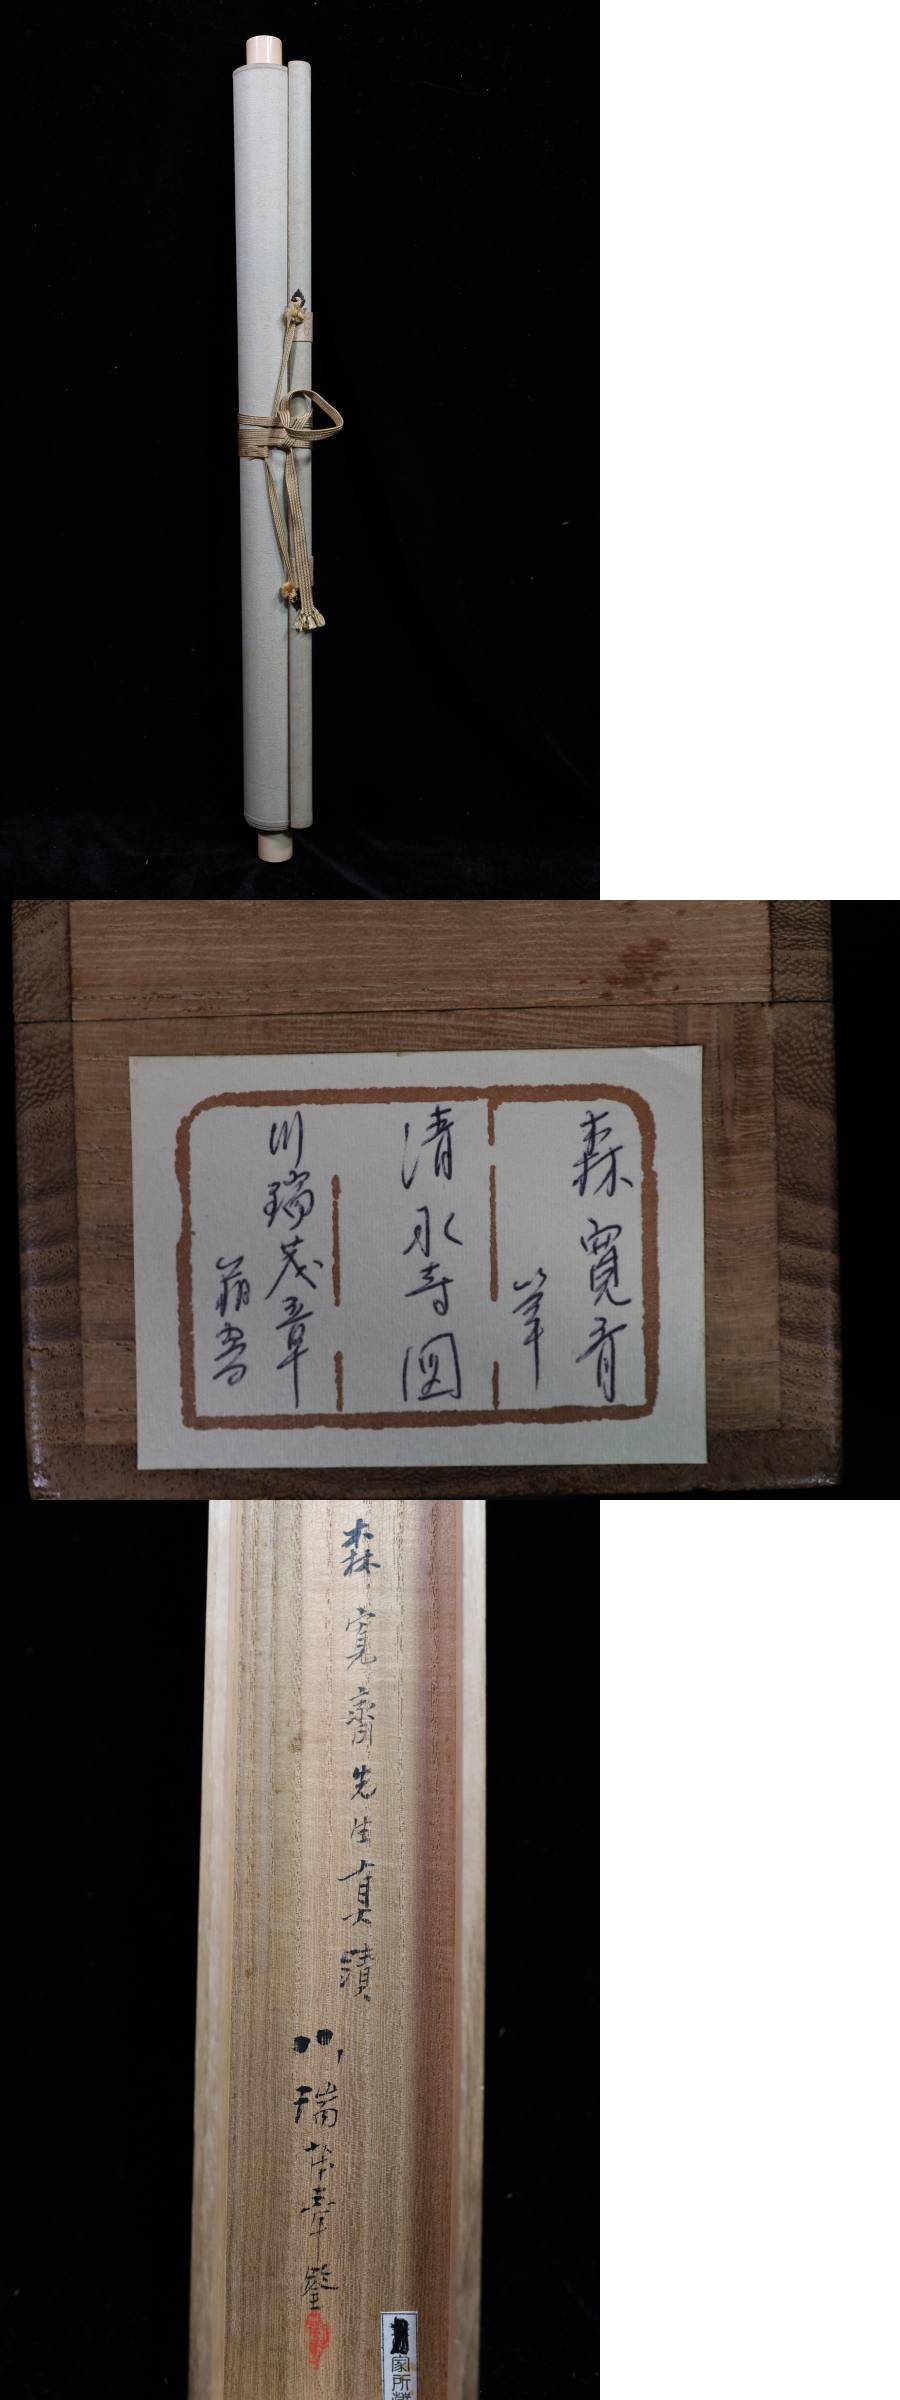 森寛斉
筆
清水寺図
川端茂章
箱書
森寛齋先生真蹟
川端茂章鑒
家所蔵